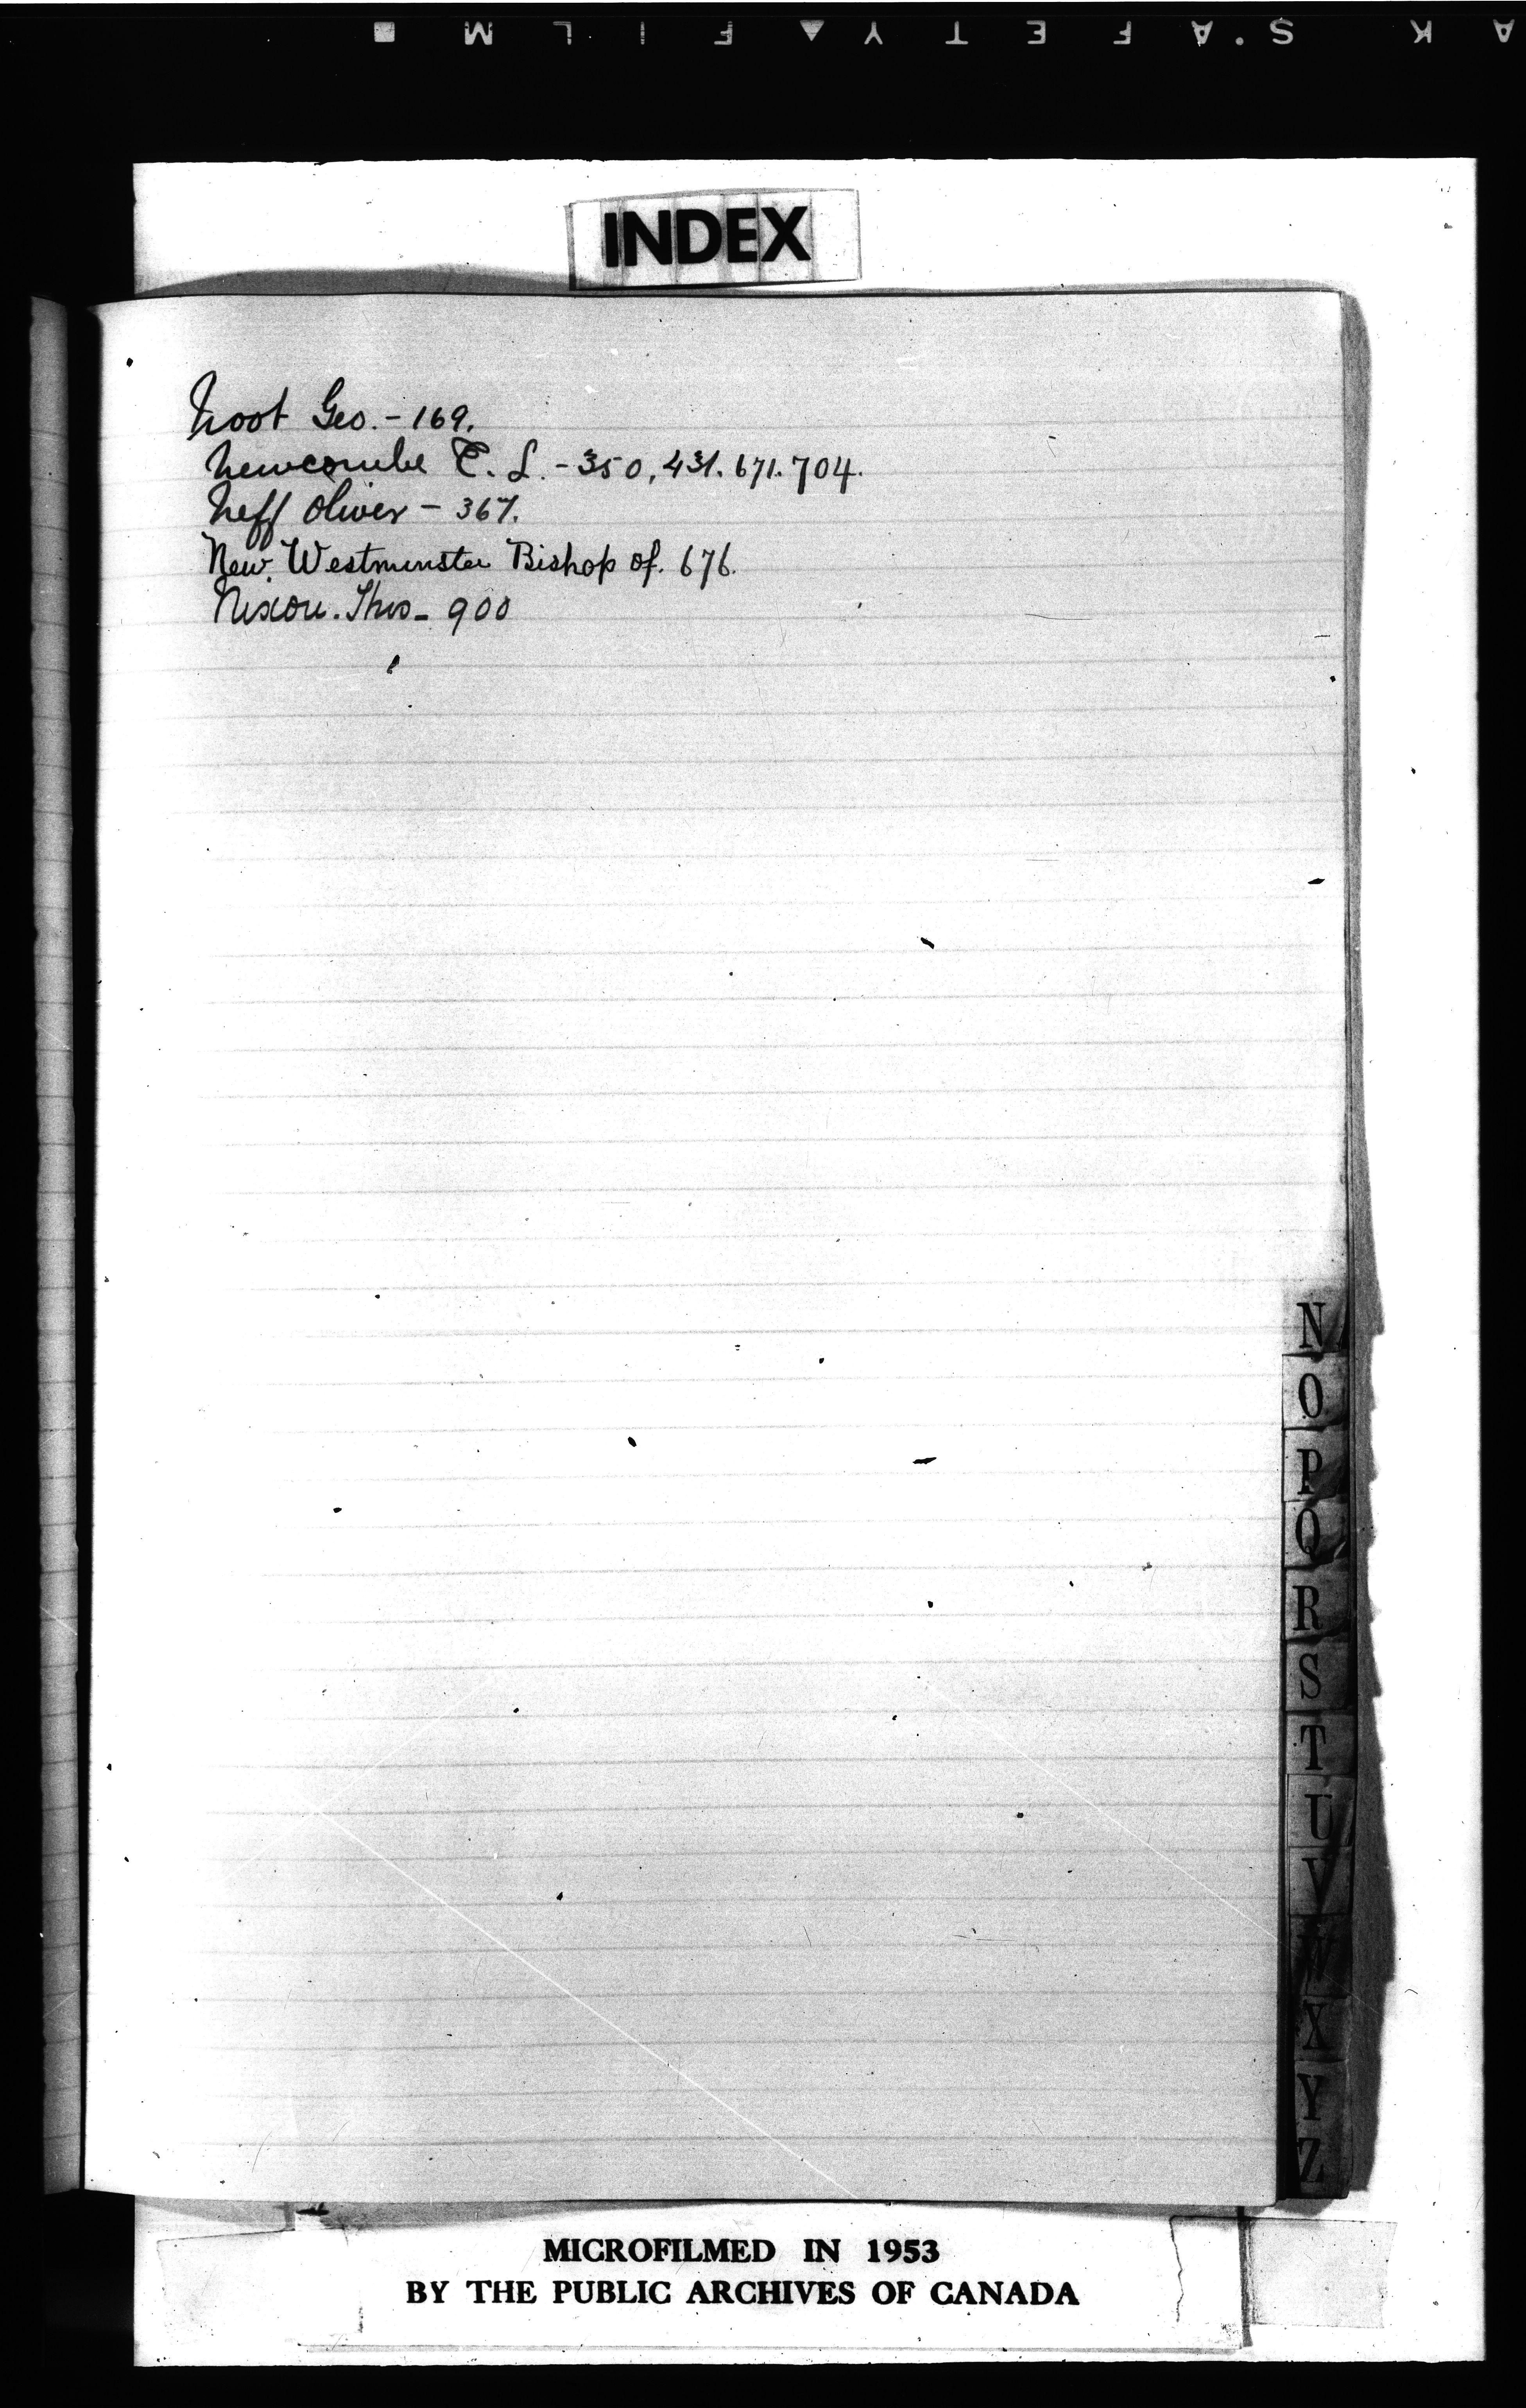 SAFETY FILM
INDEX
Noot Geo. - 169.
Newcombe E. L. - 350, 431. 671. 704.
Neff Oliver - 367.
New Westminster Bishop of. 676.
Nixon. Thos - 900
N
O
P
Q
R
S
T
U
V
W
X
Y
Z
MICROFILMED IN 1953
BY THE PUBLIC ARCHIVES OF CANADA